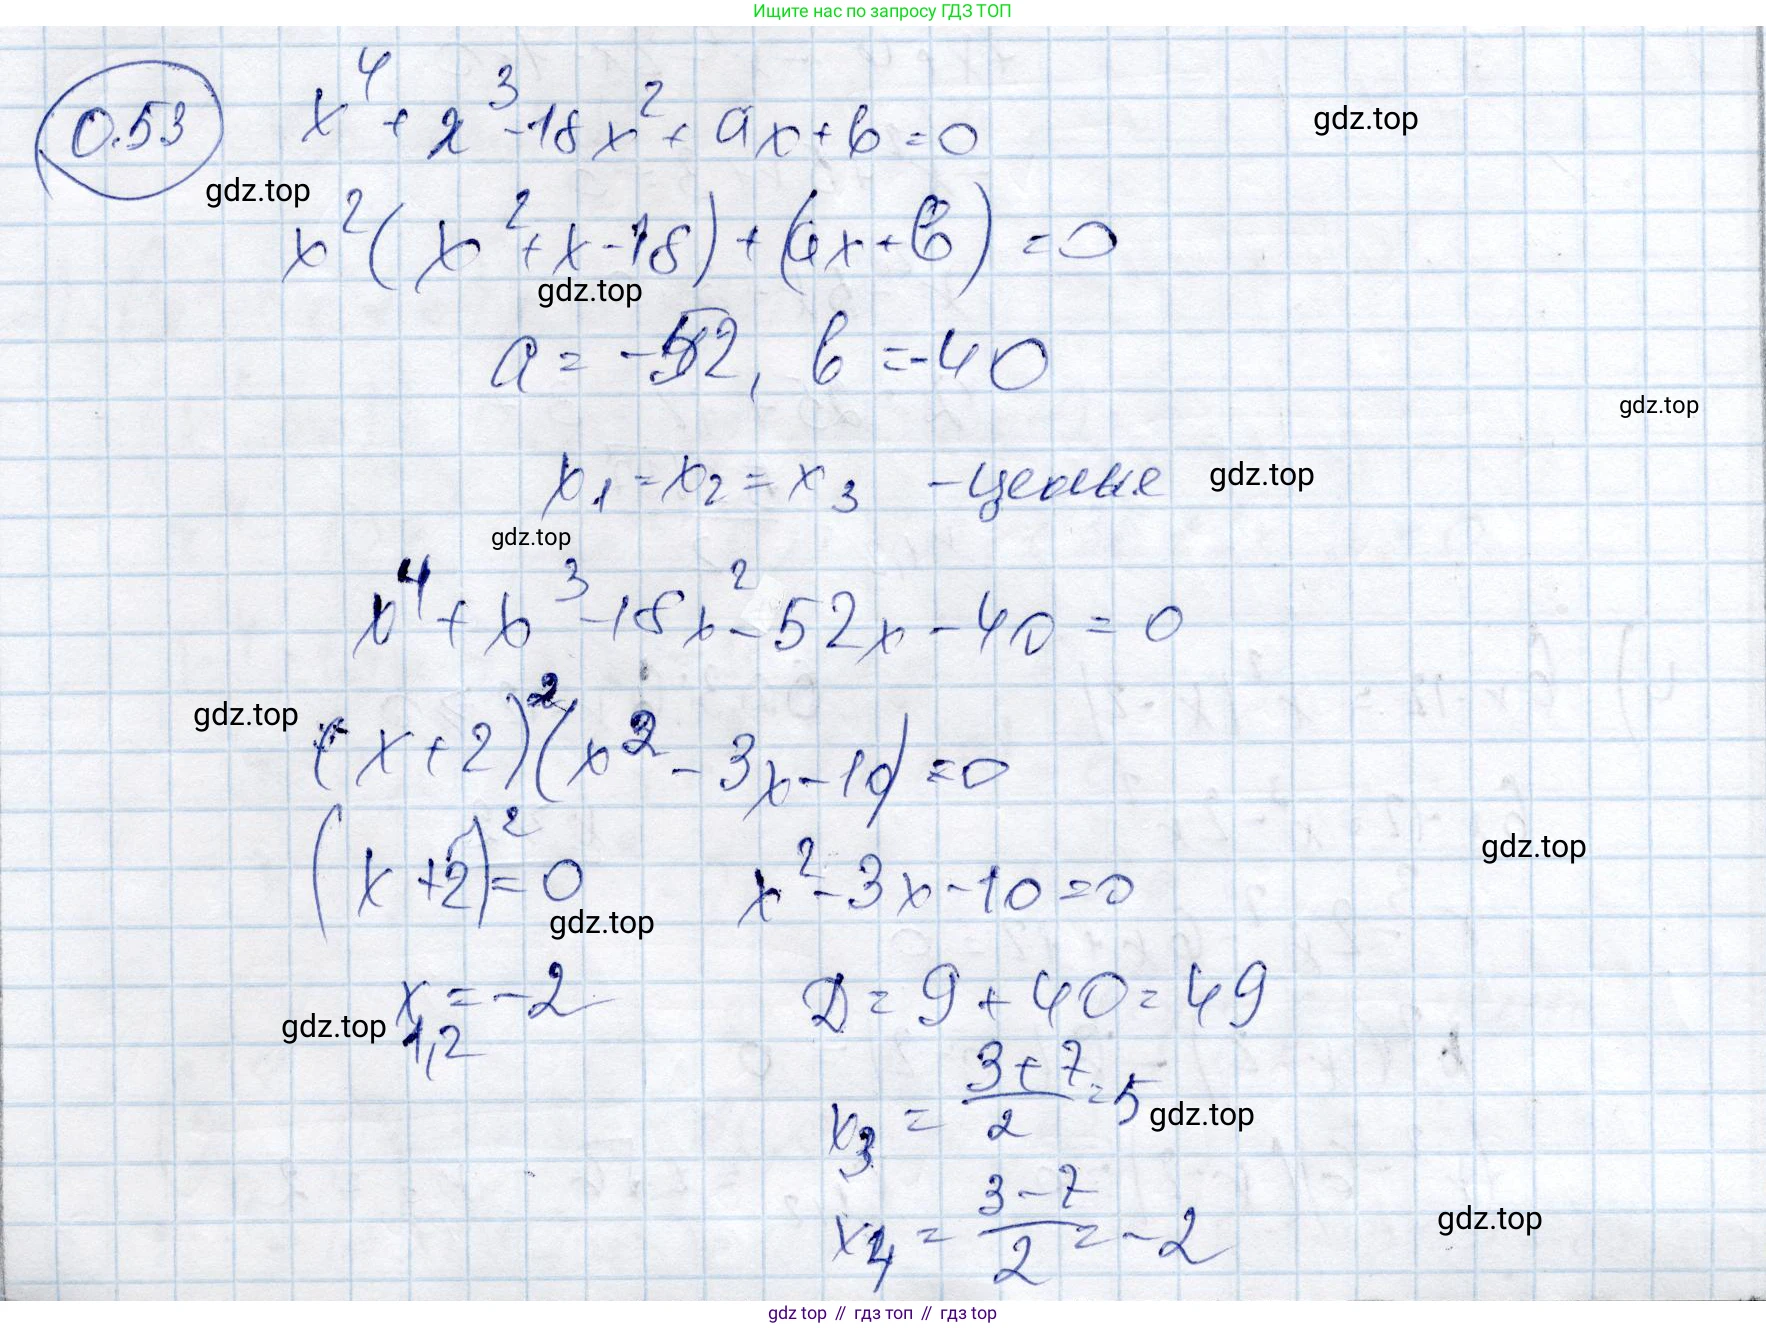 Ищите нас по запросу ГДЗ ТОП
0.53 x⁴ + x³ - 18x² + ax + b = 0
gdz.top
gdz.top
x²(x² + x - 18) + (ax + b) = 0
gdz.top
a = -52, b = -40
gdz.top
x₁ = x₂ = x₃ - целые
gdz.top
gdz.top
x⁴ + x³ - 18x² - 52x - 40 = 0
gdz.top
(x + 2)²(x² - 3x - 10) = 0
gdz.top
(x + 2)² = 0 x² - 3x - 10 = 0
gdz.top
x₁,₂ = -2 D = 9 + 40 = 49
gdz.top
x₃ = (3 + 7)/2 = 5
gdz.top
x₄ = (3 - 7)/2 = -2
gdz.top
gdz top // гдз топ // gdz top